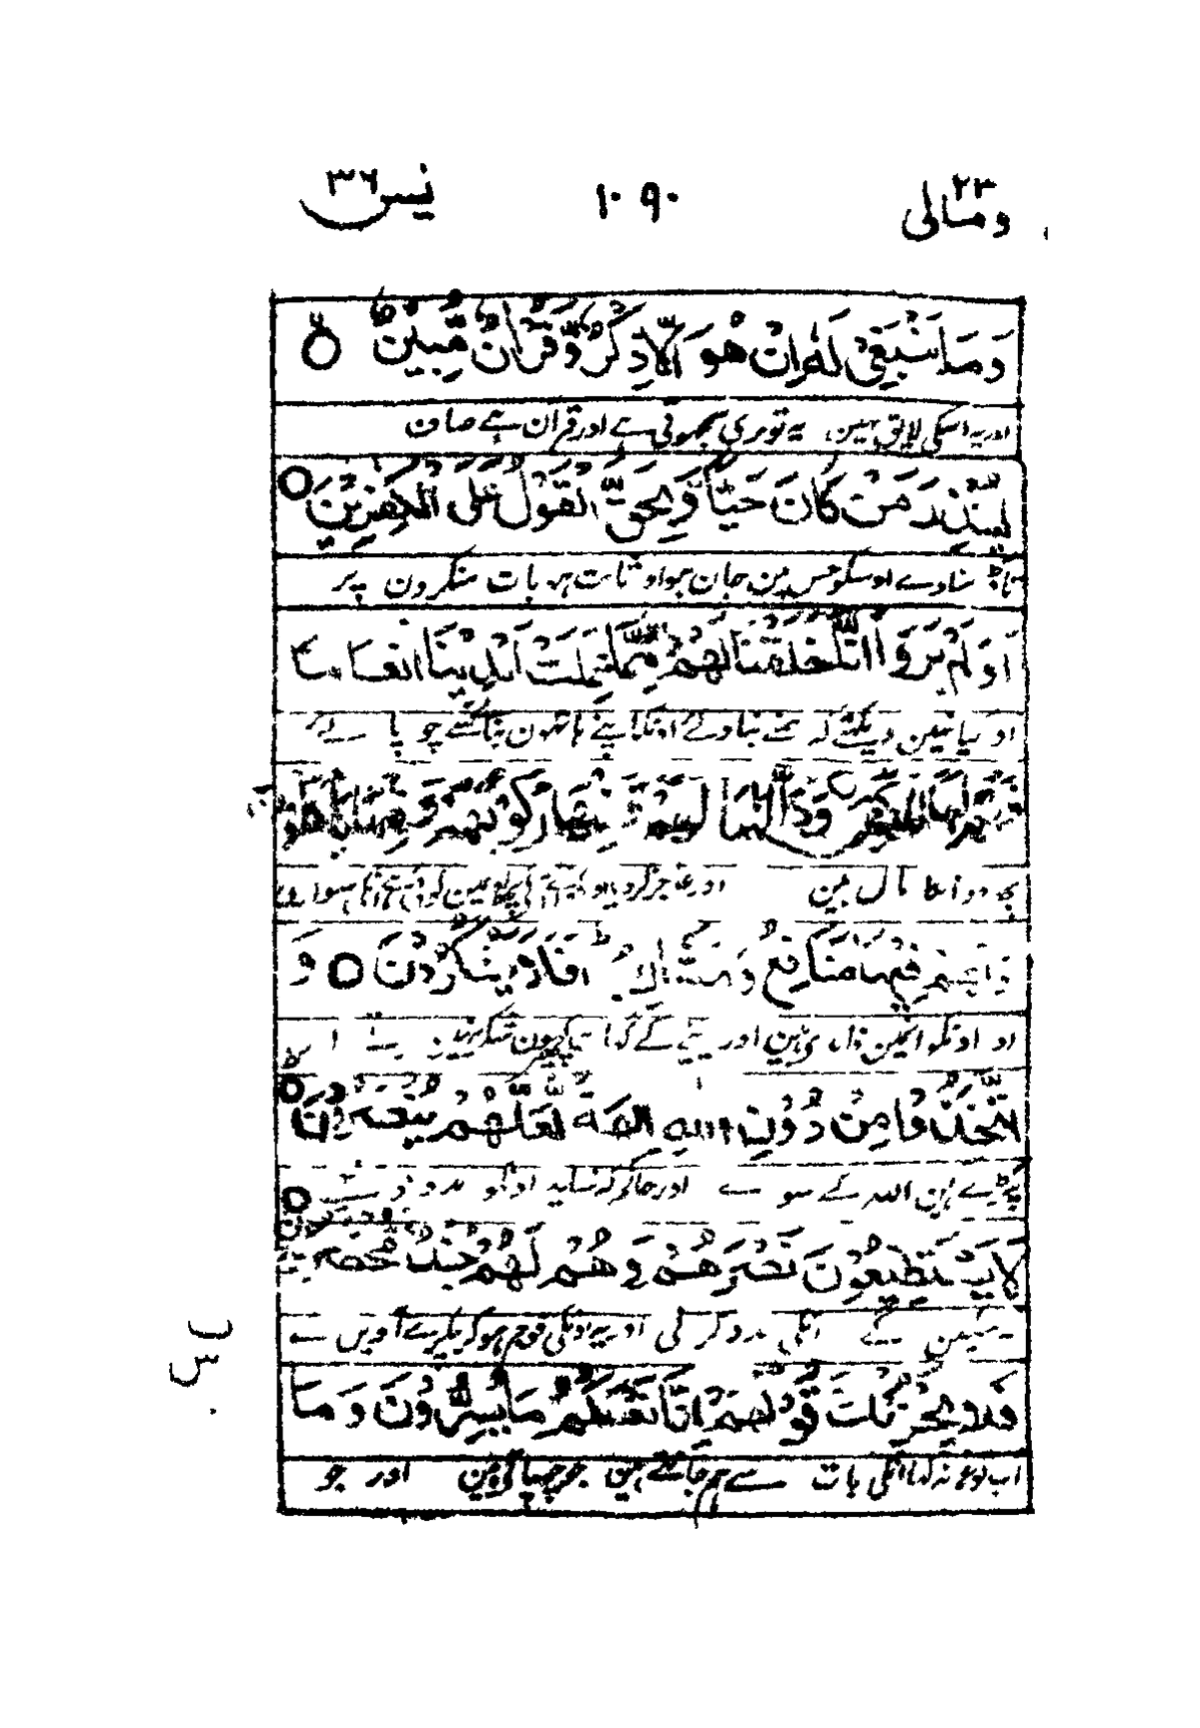 ومالی ٢٣ ١٠٩٠ یٰسٓ ٣٦
وَمَا يَنْبَغِيْ لَهٗ اِنْ هُوَ اِلَّا ذِكْرٌ وَّقُرْاٰنٌ مُّبِيْنٌ
اور یہ اسکی لایق نہین یہ تو نری سمجھوتی ہے اور قران ہے صاف
لِّيُنْذِرَ مَنْ كَانَ حَيًّا وَّيَحِقَّ الْقَوْلُ عَلَى الْكٰفِرِيْنَ
سناوے اوسکو جس مین جان ہو اور ثابت ہو بات منکرون پر
اَوَلَمْ يَرَوْا اَنَّا خَلَقْنَا لَهُمْ مِّمَّا عَمِلَتْ اَيْدِيْنَا اَنْعَامًا
اور کیا نہین دیکھتے کہ ہمنے بنا دئے انکو اپنے ہاتھون بنائے چوپائے
فَهُمْ لَهَا مٰلِكُوْنَ وَذَلَّلْنٰهَا لَهُمْ فَمِنْهَا رَكُوْبُهُمْ وَمِنْهَا يَاْكُلُوْنَ
مال ہین اور عاجز کردیا
وَلَهُمْ فِيْهَا مَنَافِعُ وَمَشَارِبُ اَفَلَا يَشْكُرُوْنَ وَ
اور اونکو ہین اور پینے کے گھاٹ کیون شکر نہین
اتَّخَذُوْا مِنْ دُوْنِ اللهِ اٰلِهَةً لَّعَلَّهُمْ يُنْصَرُوْنَ
پکڑے ہین اللہ کے سوائے اور حاکم کہ شاید اونکو مدد
لَا يَسْتَطِيْعُوْنَ نَصْرَهُمْ وَهُمْ لَهُمْ جُنْدٌ مُّحْضَرُوْنَ
نہ سکین گے انکی مدد کرنی اور یہ اونکی فوج ہوکر پکڑے آوین گے
فَلَا يَحْزُنْكَ قَوْلُهُمْ اِنَّا نَعْلَمُ مَا يُسِرُّوْنَ وَمَا
اب تو غم نہ کھا انکی بات سے ہم جانتے ہین جو چھپاتے ہین اور جو